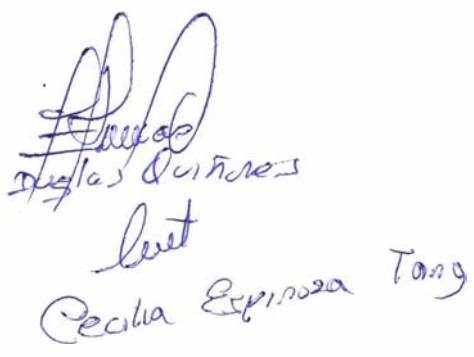 Duglas Quiñones
Cecilia Espinoza Tang